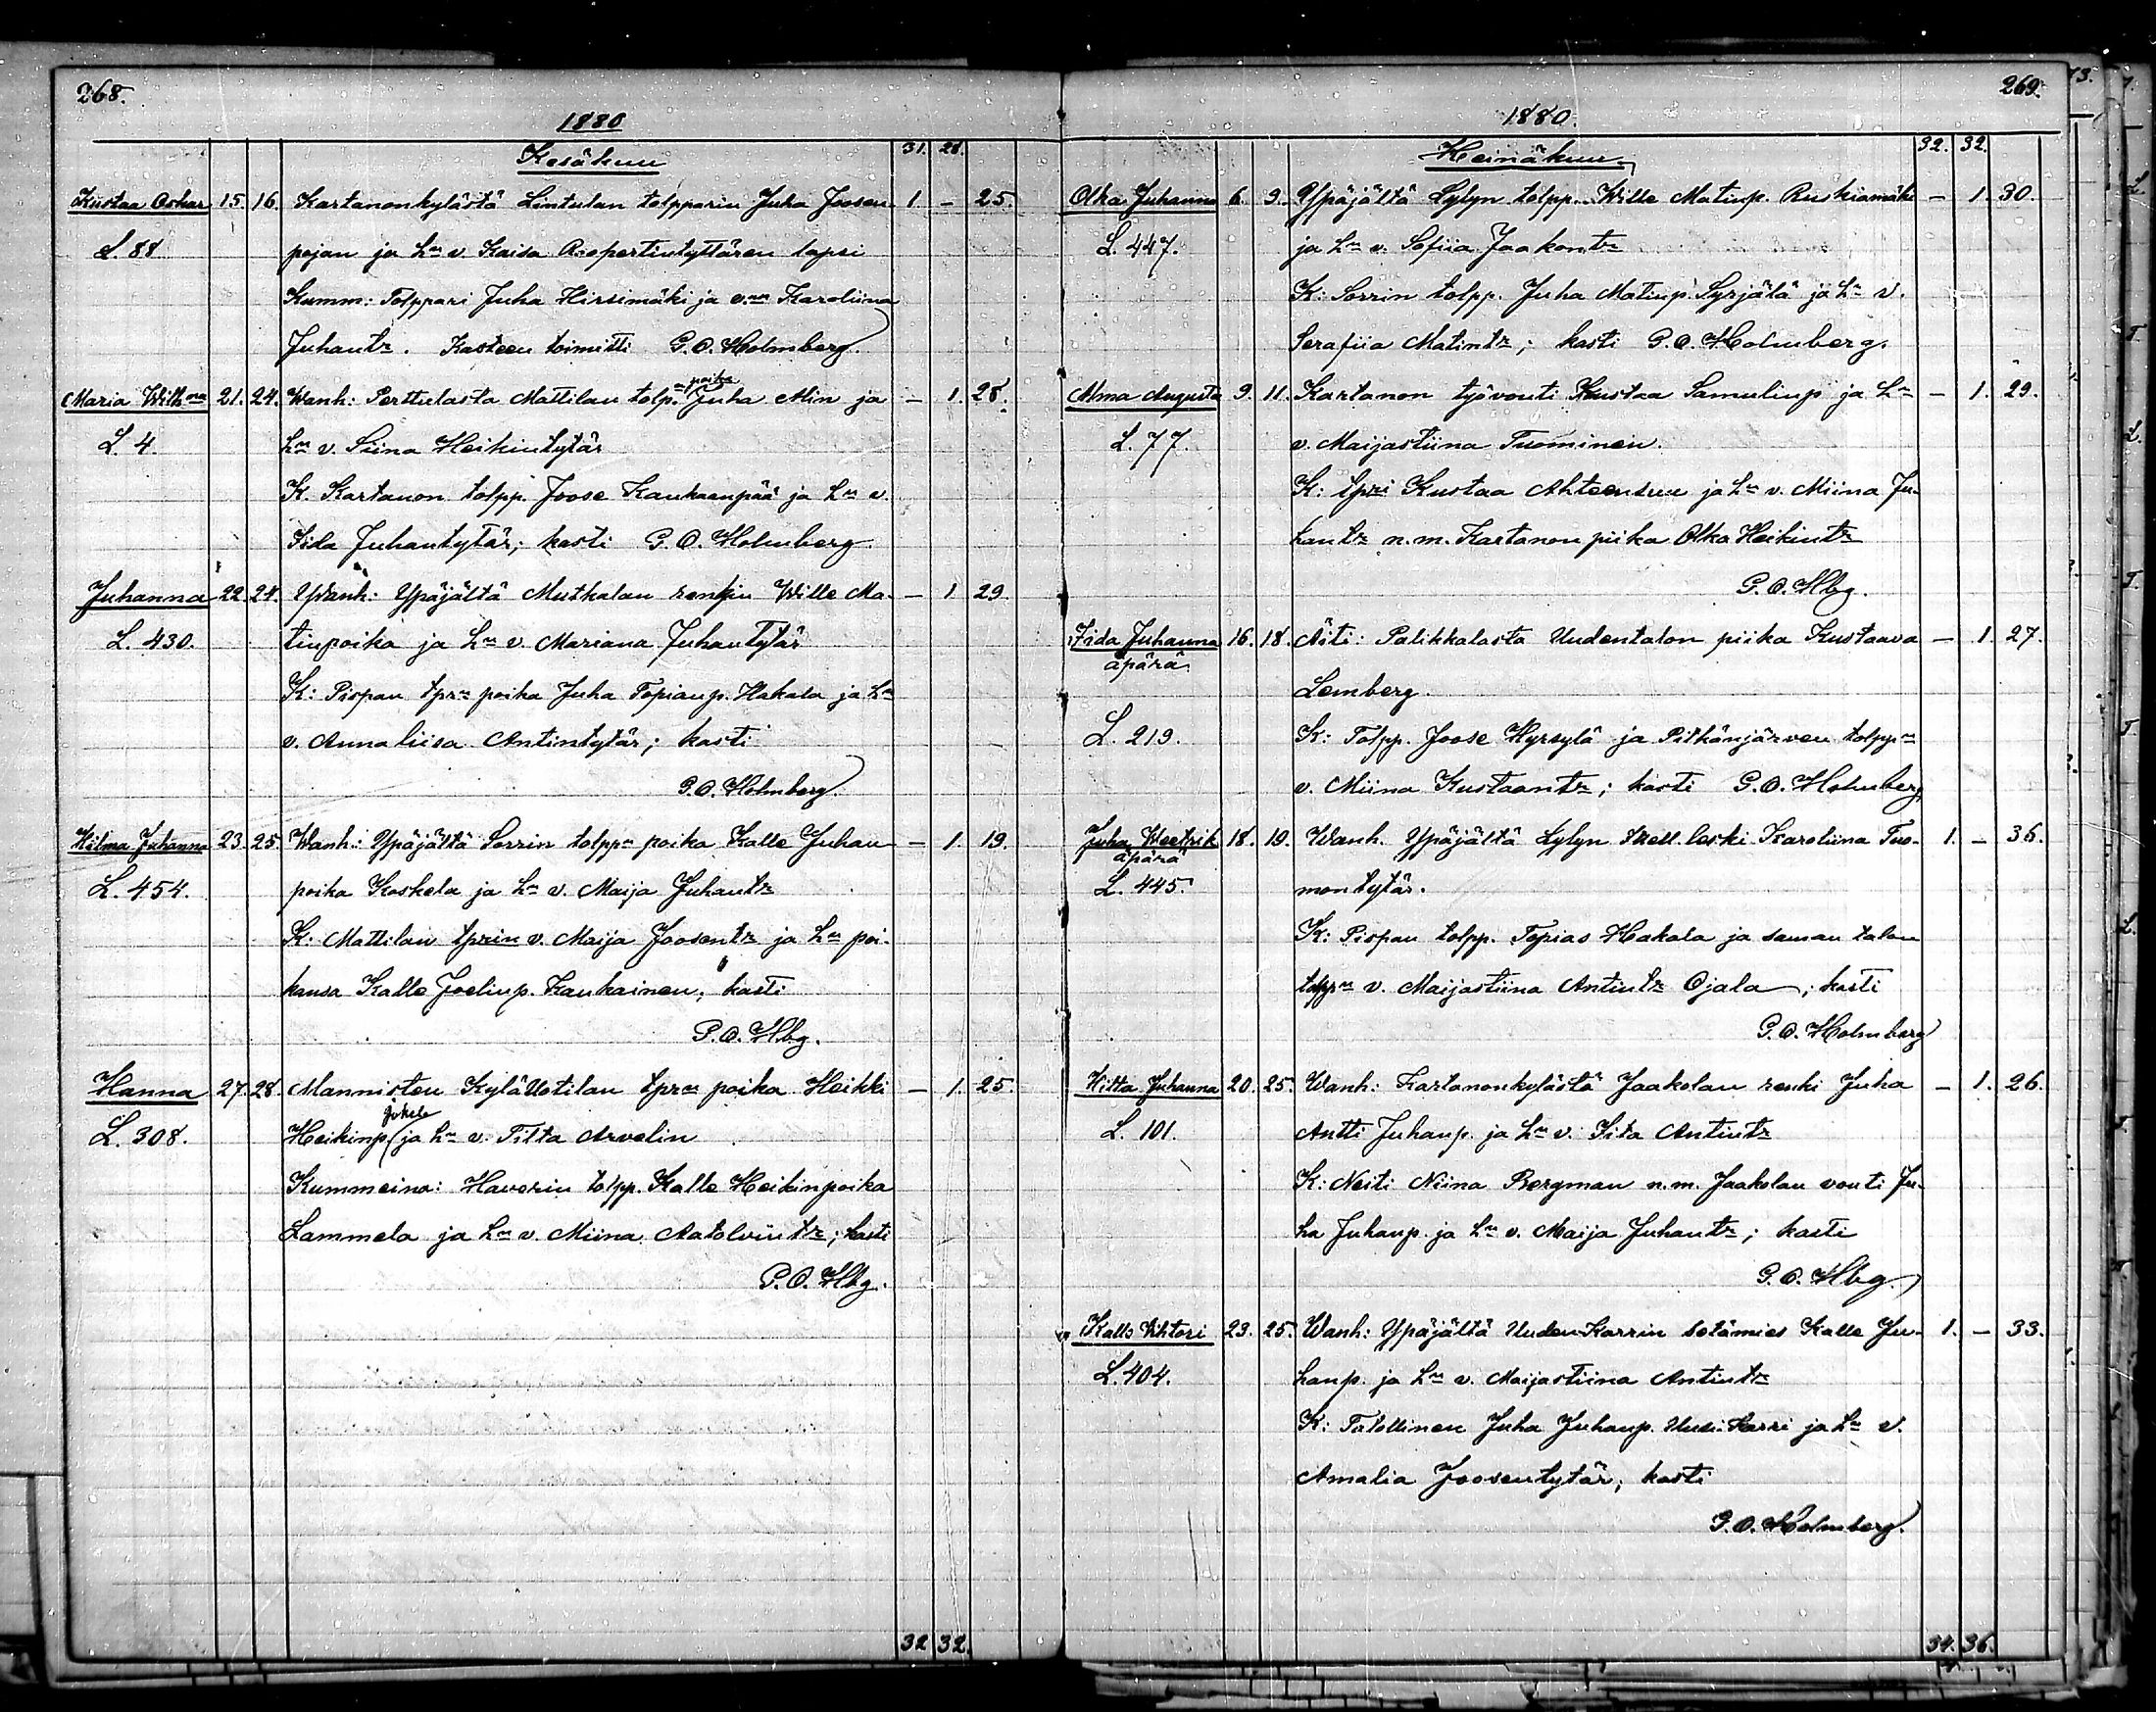 268.
1880
Kesäkuu 31. 28.
Kustaa Oskar 15. 16. Kartanonkylästä Lintulan tolpparin Juha Joosen 1 – 25.
L. 88 pojan ja hn v. Kaisa Roopertintyttären lapsi
Kumm: Tolppari Juha Hirsimäki ja v:nn Karoliina
Juhantr. Kasteen toimitti G. O. Holmberg.
Maria Wilhna 21. 24. Wanh: Perttulasta Mattilan tolp.n poika Juha Min ja – 1. 28.
L. 4. hn v. Siina Heikintytär
K. Kartanon tolpp. Joose Kankaanpää ja hn v.
Iida Juhantytär; kasti G. O. Holmberg.
Juhanna 22. 24. Wanh: Ypäjältä Muthalan renkin Wille Ma- – 1 29.
L. 430. tinpoika ja hn v. Mariana Juhantytär
K: Pispan tprn poika Juha Topianp. Hakala ja hn
v. Annaliisa Antintytär; kasti
G. O. Holmberg.
Hilma Juhanna 23. 25. Wanh: Ypäjältä Sorrin tolppn poika Kalle Juhan – 1. 19.
L. 454. poika Koskela ja hn v. Maija Juhantr
K: Mattilan tprin v. Maija Joosentr ja hn poi-
kansa Kalle Joelinp. Kankainen; kasti
G. O. Hbg.
Hanna 27. 28. Mannisten KyläUotilan tprn poika Heikki – 1. 25.
L. 308. Heikinp. Jokela ja hn v. Tilta Arvelin
Kummeina: Haverin tolpp. Kalle Heikinpoika
Lammela ja hn v. Miina Aatolviintr; kasti
G. O. Hbg.
32 32.
269.
1880.
Heinäkuu 32. 32.
Olka Juhanna 6. 9. Ypäjältä Lylyn tolpp. Wille Matinp. Ruskiamäki – 1. 30.
L. 447. ja hn v. Sofiia Jaakontr
K: Sorrin tolpp. Juha Matinp. Syrjälä ja hn v.
Serafiia Matintr; kasti G. O. Holmberg.
Alma Augusta 9. 11. Kartanon työvouti Kustaa Samulinp ja hn – 1. 29.
L. 77. v. Maijastiina Tuominen.
K: tpri Kustaa Ahteensuu ja hn v. Miina Ju-
hantr n. m. Kartanon piika Olka Heikintr
G. O. Hbg.
Iida Juhanna 16. 18. Äiti: Palikkalasta Uudentalon piika Kustaava – 1. 27.
äpärä Lemberg.
L. 219. K: Tolpp. Joose Hyrsylä ja Pitkänjärven tolppn
v. Miina Kustaantr; kasti G. O. Holmberg
Juha Weetrik 18. 19. Wanh. Ypäjältä Lylyn itsell. leski Karoliina Tuo- 1. – 36.
äpärä
L. 445. montytär.
K: Pispan tolpp. Topias Hakala ja saman talon
tolppn v. Maijastiina Antintr Ojala; kasti
G. O. Holmberg
Hilta Juhanna 20. 25. Wanh: Kartanonkylästä Jaakolan renki Juha – 1. 26.
L. 101. Antti Juhanp. ja hn v. Iita Antintr
K: Neiti Niina Bergman n. m. Jaakolan vouti Ju-
ha Juhanp. ja hn v. Maija Juhantr; kasti
G. O. Hbg.
Kalle Vihtori 23. 25. Wanh: Ypäjältä UudenKarrin sotämies Kalle Ju- 1. – 33.
L. 404. hanp. ja hn v. Maijastiina Antintr
K: Talollinen Juha Juhanp. Uusi-Karri ja hn v.
Amalia Joosentytär; kasti
G. O. Holmberg.
34. 36.